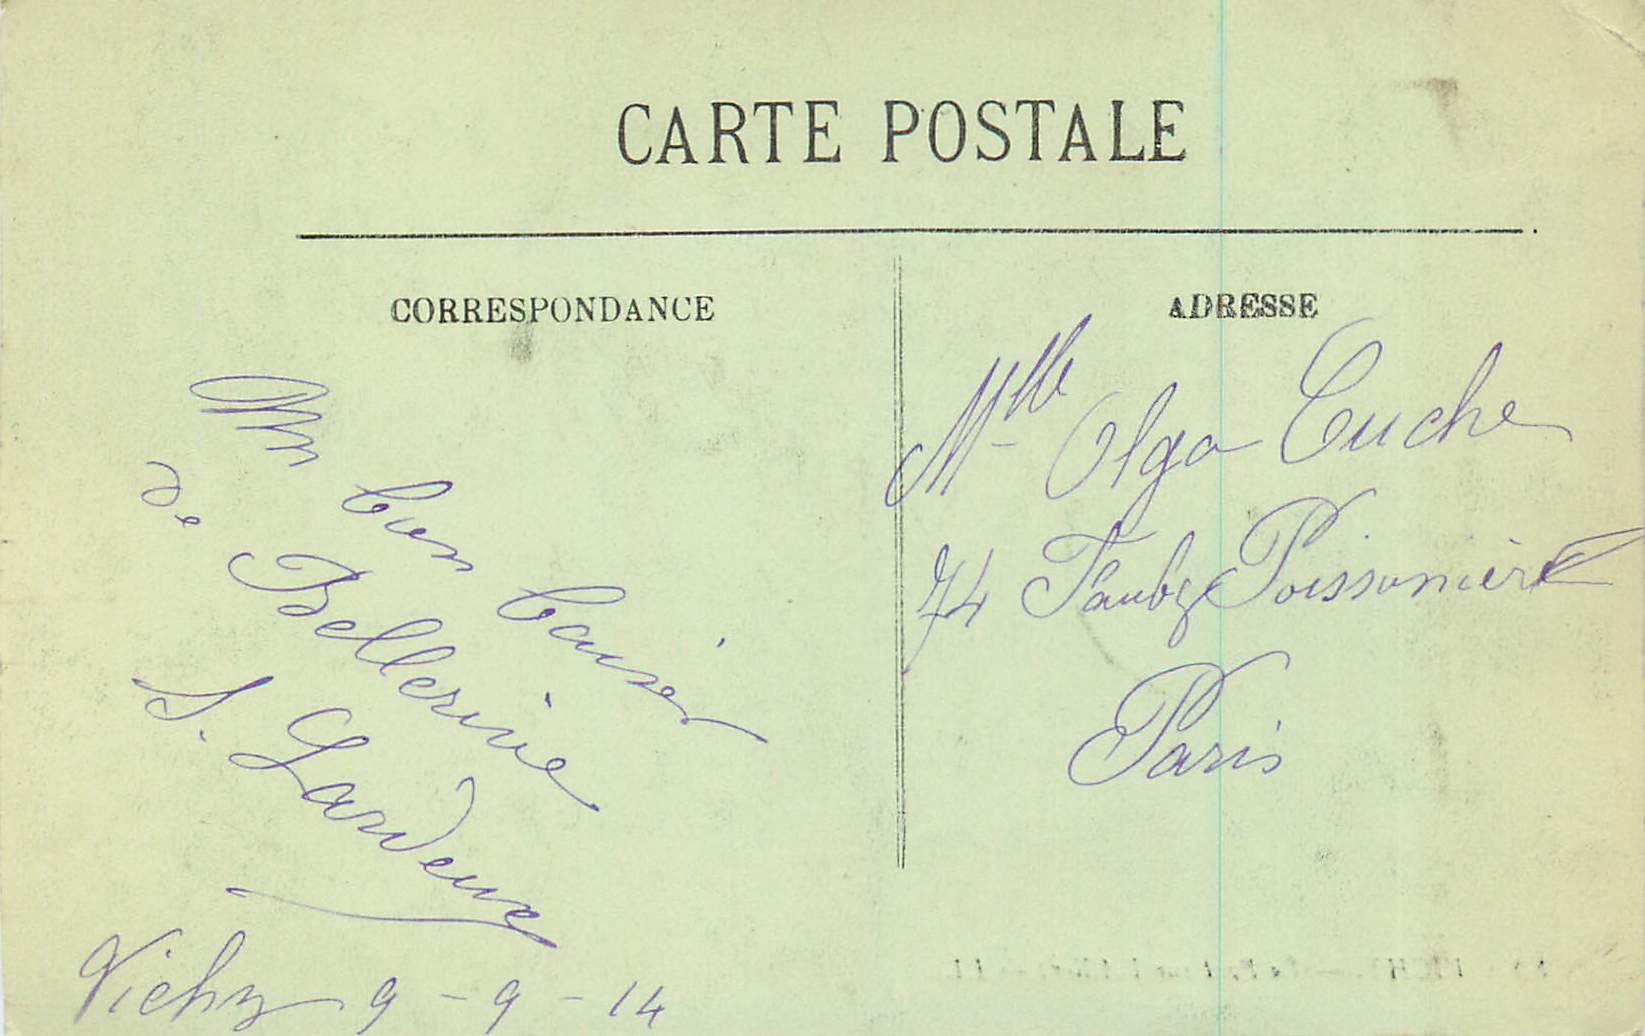 CARTE POSTALE
CORRESPONDANCE
Un bon baiser
de Bellerive
S. Lardeux
Vichy 9-9-14
ADRESSE
Mlle Olga Cuche
74 Faubg Poissonnière
Paris